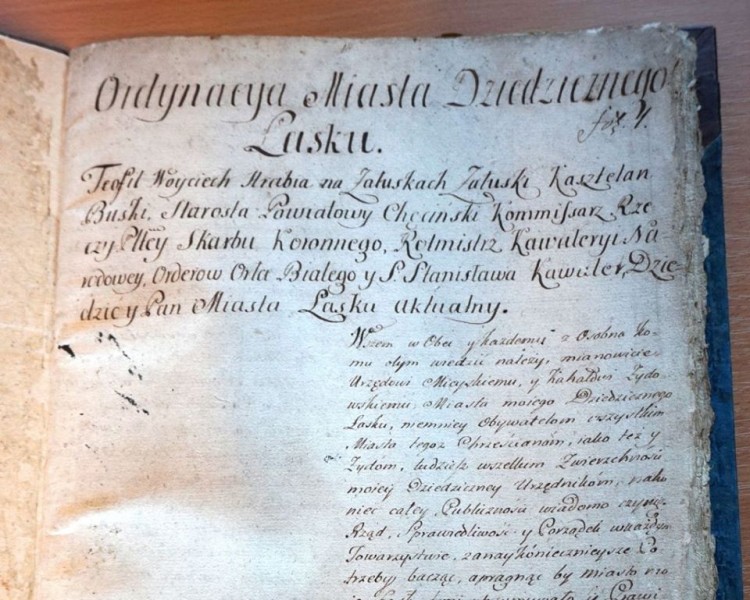 Ordynacya Miasta Dziedzicznego
Łasku.
Teofil Woyciech Hrabia na Załuskach Załuski Kasztelan
Buski, Starosta Powiatowy Chęciński Kommissarz Rze
czy Pltey Skarbu Koronnego, Rotmistrz Kawaleryi Na
rodowey, Orderow Orła Białego y S. Stanisława Kawaler, Dzie-
dzic y Pan Miasta Łasku aktualny.
Wszem w Obec y każdemu z Osobna ko-
mu otym wiedzieć należy, mianowicie
Urzędowi Mieyskiemu, y Kahałowi Żydo
wskiemu Miasta moiego Dziedzicznego
Łasku, niemniey Obywatelom wszystkim
Miasta tegoż Chrześcianom, iako też y
Żydom, tudzież wszelkim Zwierzchności
moiey Dziedziczney Urzędnikom, nako
niec całey Publiczności wiadomo czynię.
Rząd, Sprawiedliwość y Porządek w każdym
Towarzystwie, zanaykoniecznieysze Po
trzeby bacząc, apragnąc by miasto mo